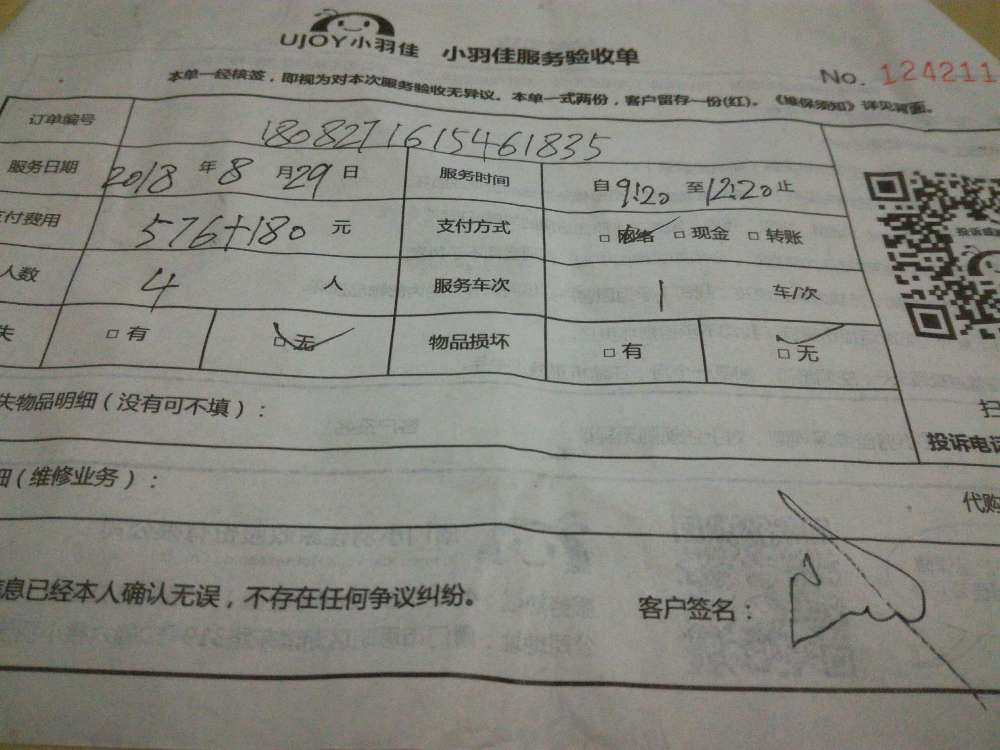 UJOY小羽佳 小羽佳服务验收单
No. 124211
本单一经核签，即视为对本次服务验收无异议。本单一式两份，客户留存一份(红)。《维保须知》详见背面。
订单编号 1808271615461835
服务日期 2018 年 8 月 29 日 服务时间 自 9:20 至 12:20 止
付费用 576+180 元 支付方式 □ 网络 □ 现金 □ 转账
人数 4 人 服务车次 1 车/次
失 □ 有 □ 无 物品损坏 □ 有 □ 无
失物品明细（没有可不填）：
扫
投诉电话
细（维修业务）：
代购
信息已经本人确认无误，不存在任何争议纠纷。 客户签名：